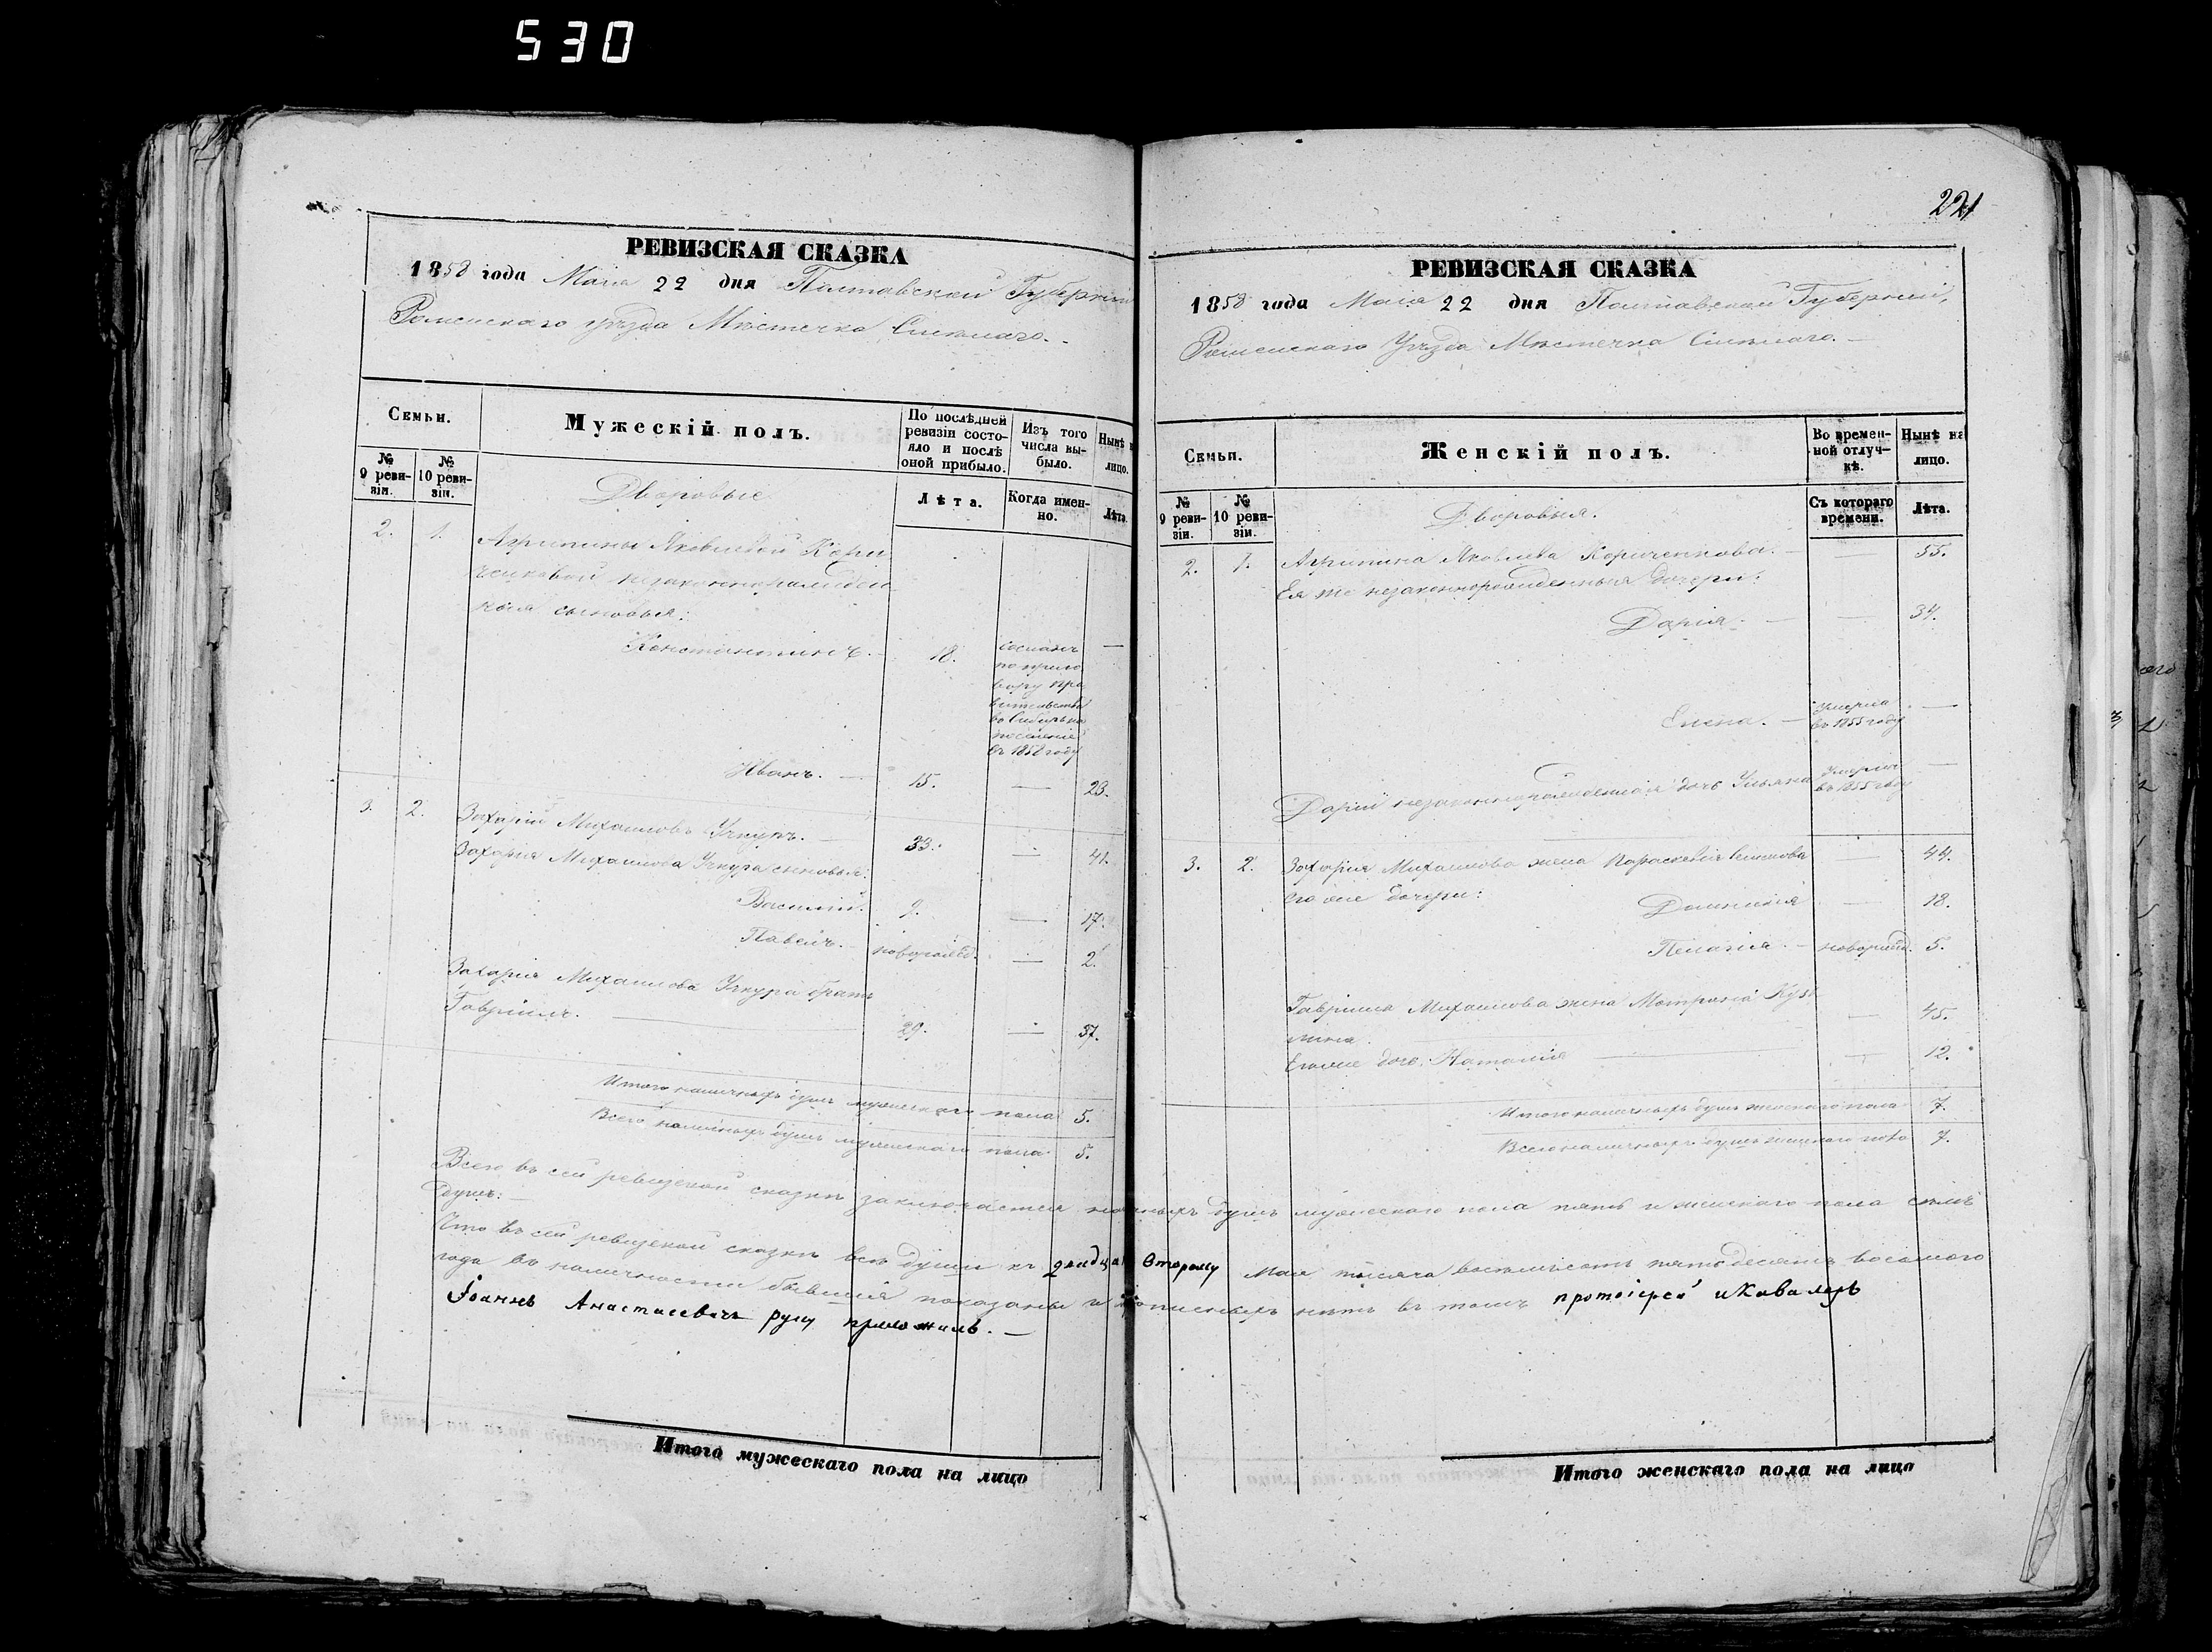 530
221
РЕВИЗСКАЯ СКАЗКА
1858 года Маія 22 дня Полтавской Губерніи
Роменского уѣзда Мѣстечка Смѣлаго.-
Семьи.
Мужескій полъ.
По послѣдней ревизіи состояло и послѣ оной прибыло.
Изъ того числа выбыло.
Нынѣ
лицо.
№ 9 ревизіи.
№ 10 ревизіи.
Лѣта.
Когда именно.
Лѣта.
Дворовые
2. 1. Агрипины Яковлевой Кори
ченковой незаконнорожден
ныя сыновья:
Константинъ. - 18. сосланъ —
по приго
вору пра
вительства
въ Сибирь на
поселеніе
въ 1852 году
Иванъ. — 15. — 23.
3. 2. Захарій Михаиловъ Учкуръ. — 33. — 41.
Захарія Михаилова Учкура сыновья:
Василій. 9. — 17.
Павелъ. новорожд. — 2.
Захарія Михаилова Учкура братъ
Гавріилъ. — 29. — 37.
Итого наличныхъ душъ мужескаго пола 5.
Всего наличныхъ душъ мужескаго пола 5.
РЕВИЗСКАЯ СКАЗКА
1858 года Маія 22 дня Полтавской Губерніи,
Роменскаго Уѣзда Мѣстечка Смѣлаго. —
Семьи.
Женскій полъ.
Во временной отлучкѣ.
Нынѣ на лицо.
№ 9 ревизіи.
№ 10 ревизіи.
Съ котораго времени.
Лѣта.
Дворовыя.
2. 1. Агрипина Яковлева Кориченкова. — — 55.
Ея же незаконнорожденныя дочери:
Дарія. — — 34.
Елена. — умерла —
въ 1855 году
Даріи незаконнорожденная дочь Ульяна умерла —
въ 1855 году
3. 2. Захарія Михаилова жена Параскевія — 44.
его же дочери: Домникія — 18.
Пелагія. — новорожд. 5.
Гавріила Михаилова жена Матрона Кузь
мина. — — 45.
Его же дочь Наталія — — 12.
Итого наличныхъ душъ женскаго пола 7.
Всего наличныхъ душъ женскаго пола 7.
Всего въ сей ревизской сказкѣ заключается наличныхъ душъ мужескаго пола пять и женскаго пола семь
душъ: —
Что въ сей ревизской сказкѣ всѣ души къ двадцать второму Мая тысяча восемьсотъ пятьдесятъ восьмого
года въ наличности бывшія показаны и прописныхъ нѣтъ въ томъ протоіерей и Кавалеръ
Іоаннъ Анастасевичъ руку приложилъ. —
Итого мужескаго пола на лицо
Итого женскаго пола на лицо